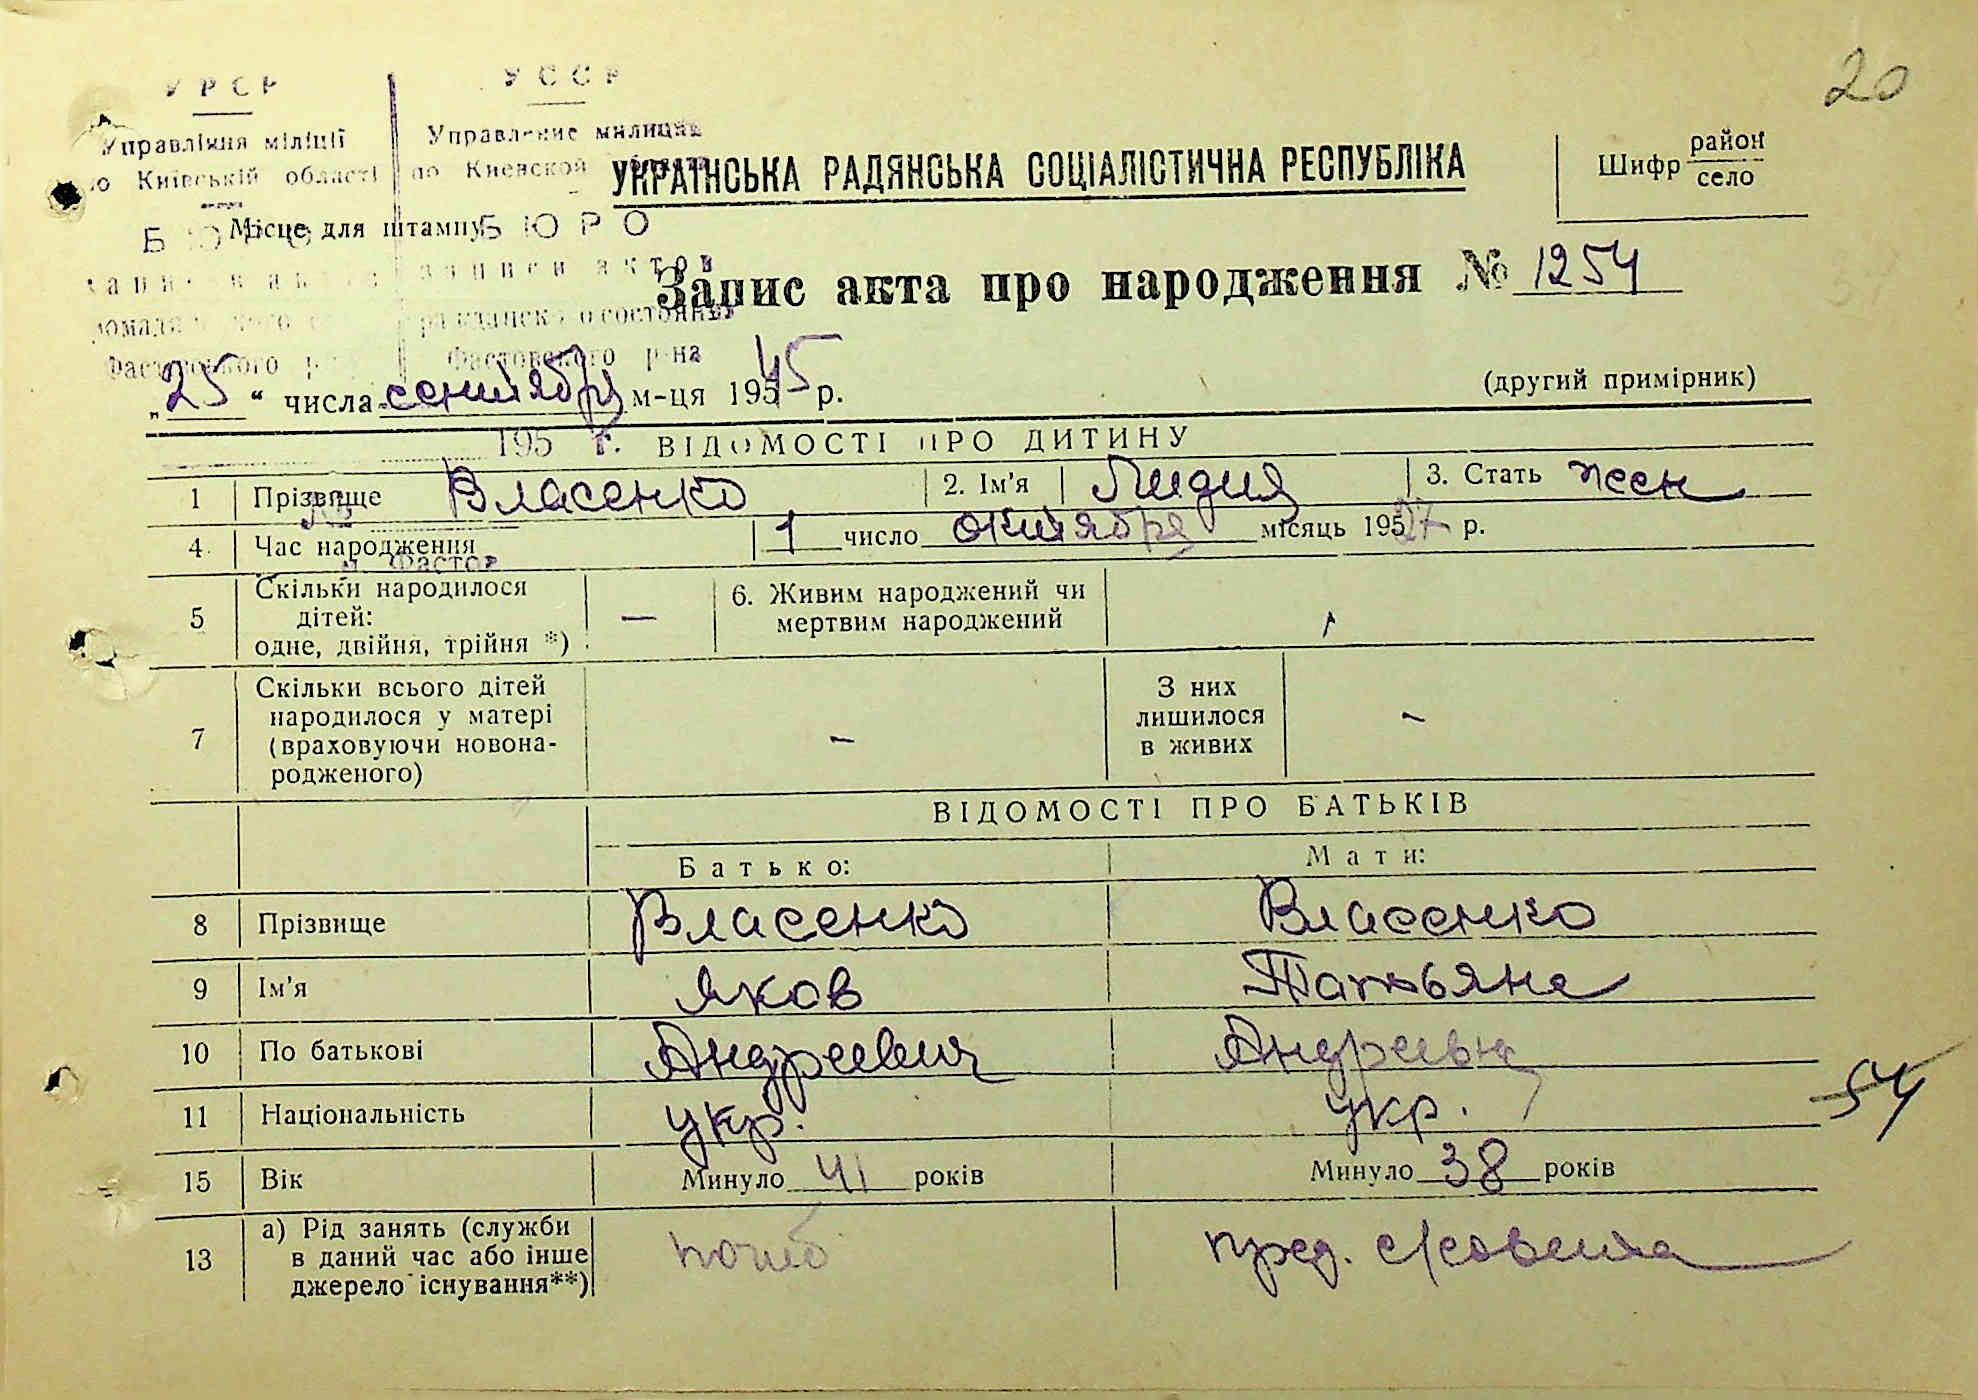 20
УРСР
УССР
Управління міліції
Управление милиции
по Київській області
по Киевской
УКРАЇНСЬКА РАДЯНСЬКА СОЦІАЛІСТИЧНА РЕСПУБЛІКА
Шифр район
село
Місце для штампу
БЮРО
БЮРО
записи актов
Запис акта про народження № 1254
гражданского состояния
Фастовского р-на
"25" числа сентября м-ця 195 45 р.
(другий примірник)
195 г.
ВІДОМОСТІ ПРО ДИТИНУ
1 Прізвище Власенко 2. Ім'я Лидия 3. Стать жен
4 Час народження 1 число октября місяць 195 27 р.
м. Фастов
5 Скільки народилося
дітей:
одне, двійня, трійня *) —
6. Живим народжений чи
мертвим народжений
7 Скільки всього дітей
народилося у матері
(враховуючи новона-
родженого) -
З них
лишилося
в живих -
ВІДОМОСТІ ПРО БАТЬКІВ
Батько: Мати:
8 Прізвище Власенко Власенко
9 Ім'я Яков Татьяна
10 По батькові Андреевич Андреевн
11 Національність укр. укр.
54
15 Вік Минуло 41 років Минуло 38 років
13 а) Рід занять (служби
в даний час або інше
джерело існування**) погиб пред. с/совета